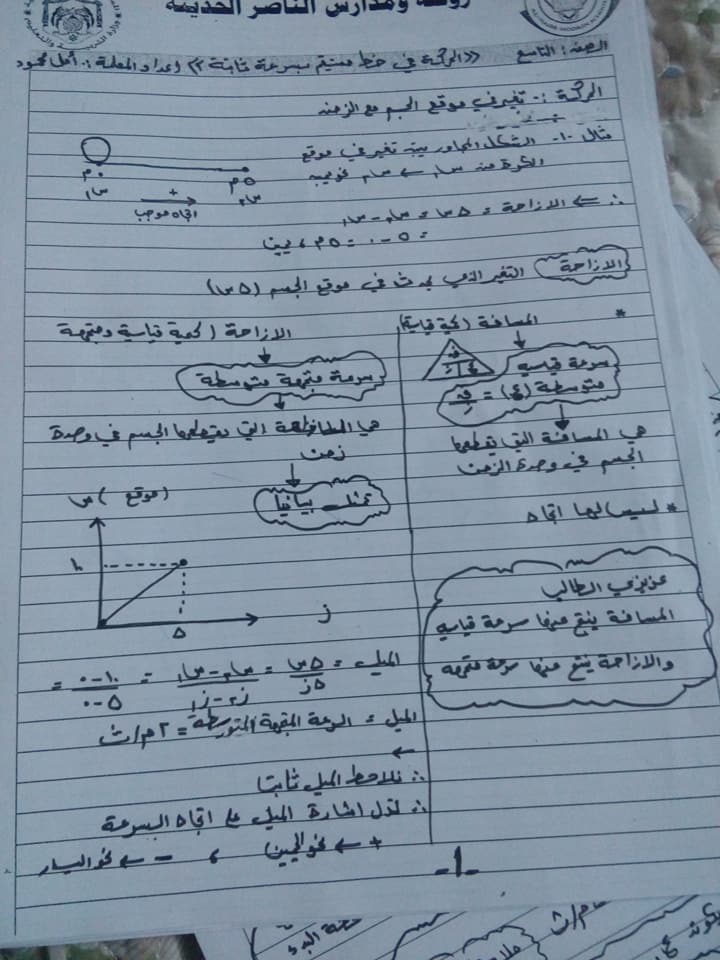 روضة ومدارس الناصر الحديثة
الصف: التاسع ((الحركة في خط مستقيم بسرعة ثابتة)) إعداد المعلمة: أمل محمود
الحركة :- تغير في موقع الجسم مع الزمن
مثال -١- الشكل المجاور يبين تغير في موقع
الكرة من س١ ← س٢
٠م
٥م
س١
س٢
+
اتجاه موجب
∴ ← الازاحة = Δس = س٢ - س١
= ٥ - ٠ = ٥م ، يمينا
الازاحة التغير الذي يحدث في موقع الجسم (Δس)
* المسافة (كمية قياسية)
سرعة قياسية
متوسطة (ع) = ف/ز
ف
ع ز
هي المسافة التي يقطعها
الجسم في وحدة الزمن
* ليس لها اتجاه
عزيزي الطالب
المسافة ينتج عنها سرعة قياسية
والازاحة ينتج عنها سرعة متجهة
الازاحة (كمية قياسية ومتجهة
سرعة متجهة متوسطة
هي التي يقطعها الجسم في وحدة
زمن
تمثل بيانيا
(موقع) س
١٠
٥
ز
الميل = Δس/Δز = س٢ - س١/ز٢ - ز١ = ١٠ - ٠/٥ - ٠ =
الميل = السرعة المتجهة المتوسطة = ٢م/ث
←
∴ نلاحظ الميل ثابتا
∴ تدل اشارة الميل على اتجاه السرعة
+ ← نحو اليمين ، - ← نحو اليسار
-١-
م/ث